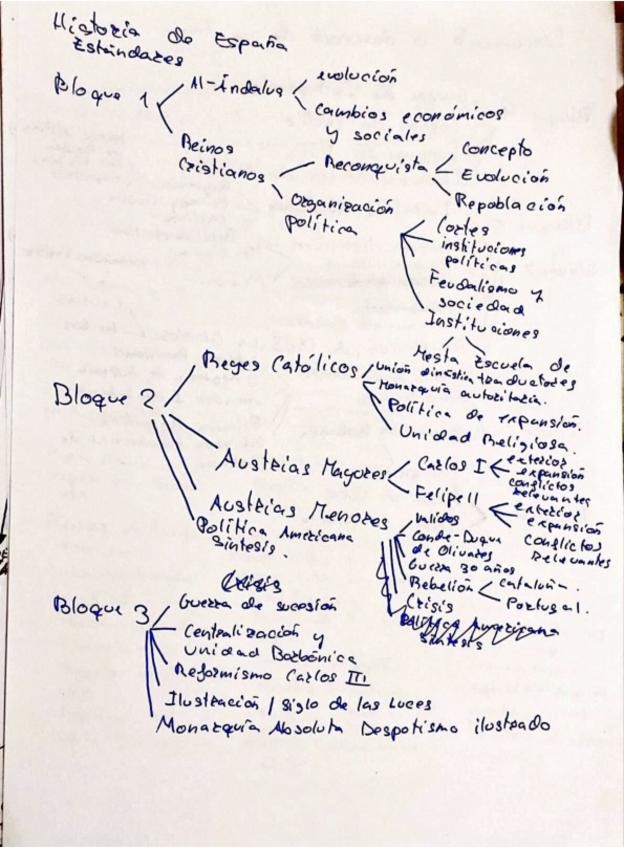 Historia de España
Estándares
Bloque 1
Al-Ándalus
evolución
Cambios económicos
y sociales
Reinos
Cristianos
Reconquista
Concepto
Evolución
Repoblación
Organización
política
Cortes
instituciones
políticas
Feudalismo y
sociedad
Instituciones
Mesta Escuela de
traductores
Bloque 2
Reyes Católicos
Unión dinástica
Monarquía autoritaria.
Política de expansión.
Unidad Religiosa.
Austrias Mayores
Carlos I
exterior
expansión
conflictos
relevantes
Felipe II
exterior
expansión
Conflictos
Relevantes
Austrias Menores
Validos
Conde-Duque
de Olivares
Guerra 30 años
Rebelión
Cataluña.
Portugal.
Crisis
Política Americana
Síntesis
Política Americana
Síntesis.
Crisis
Bloque 3
Guerra de sucesión
Centralización y
Unidad Borbónica
Reformismo Carlos III
Ilustración / Siglo de las Luces
Monarquía Absoluta Despotismo ilustrado